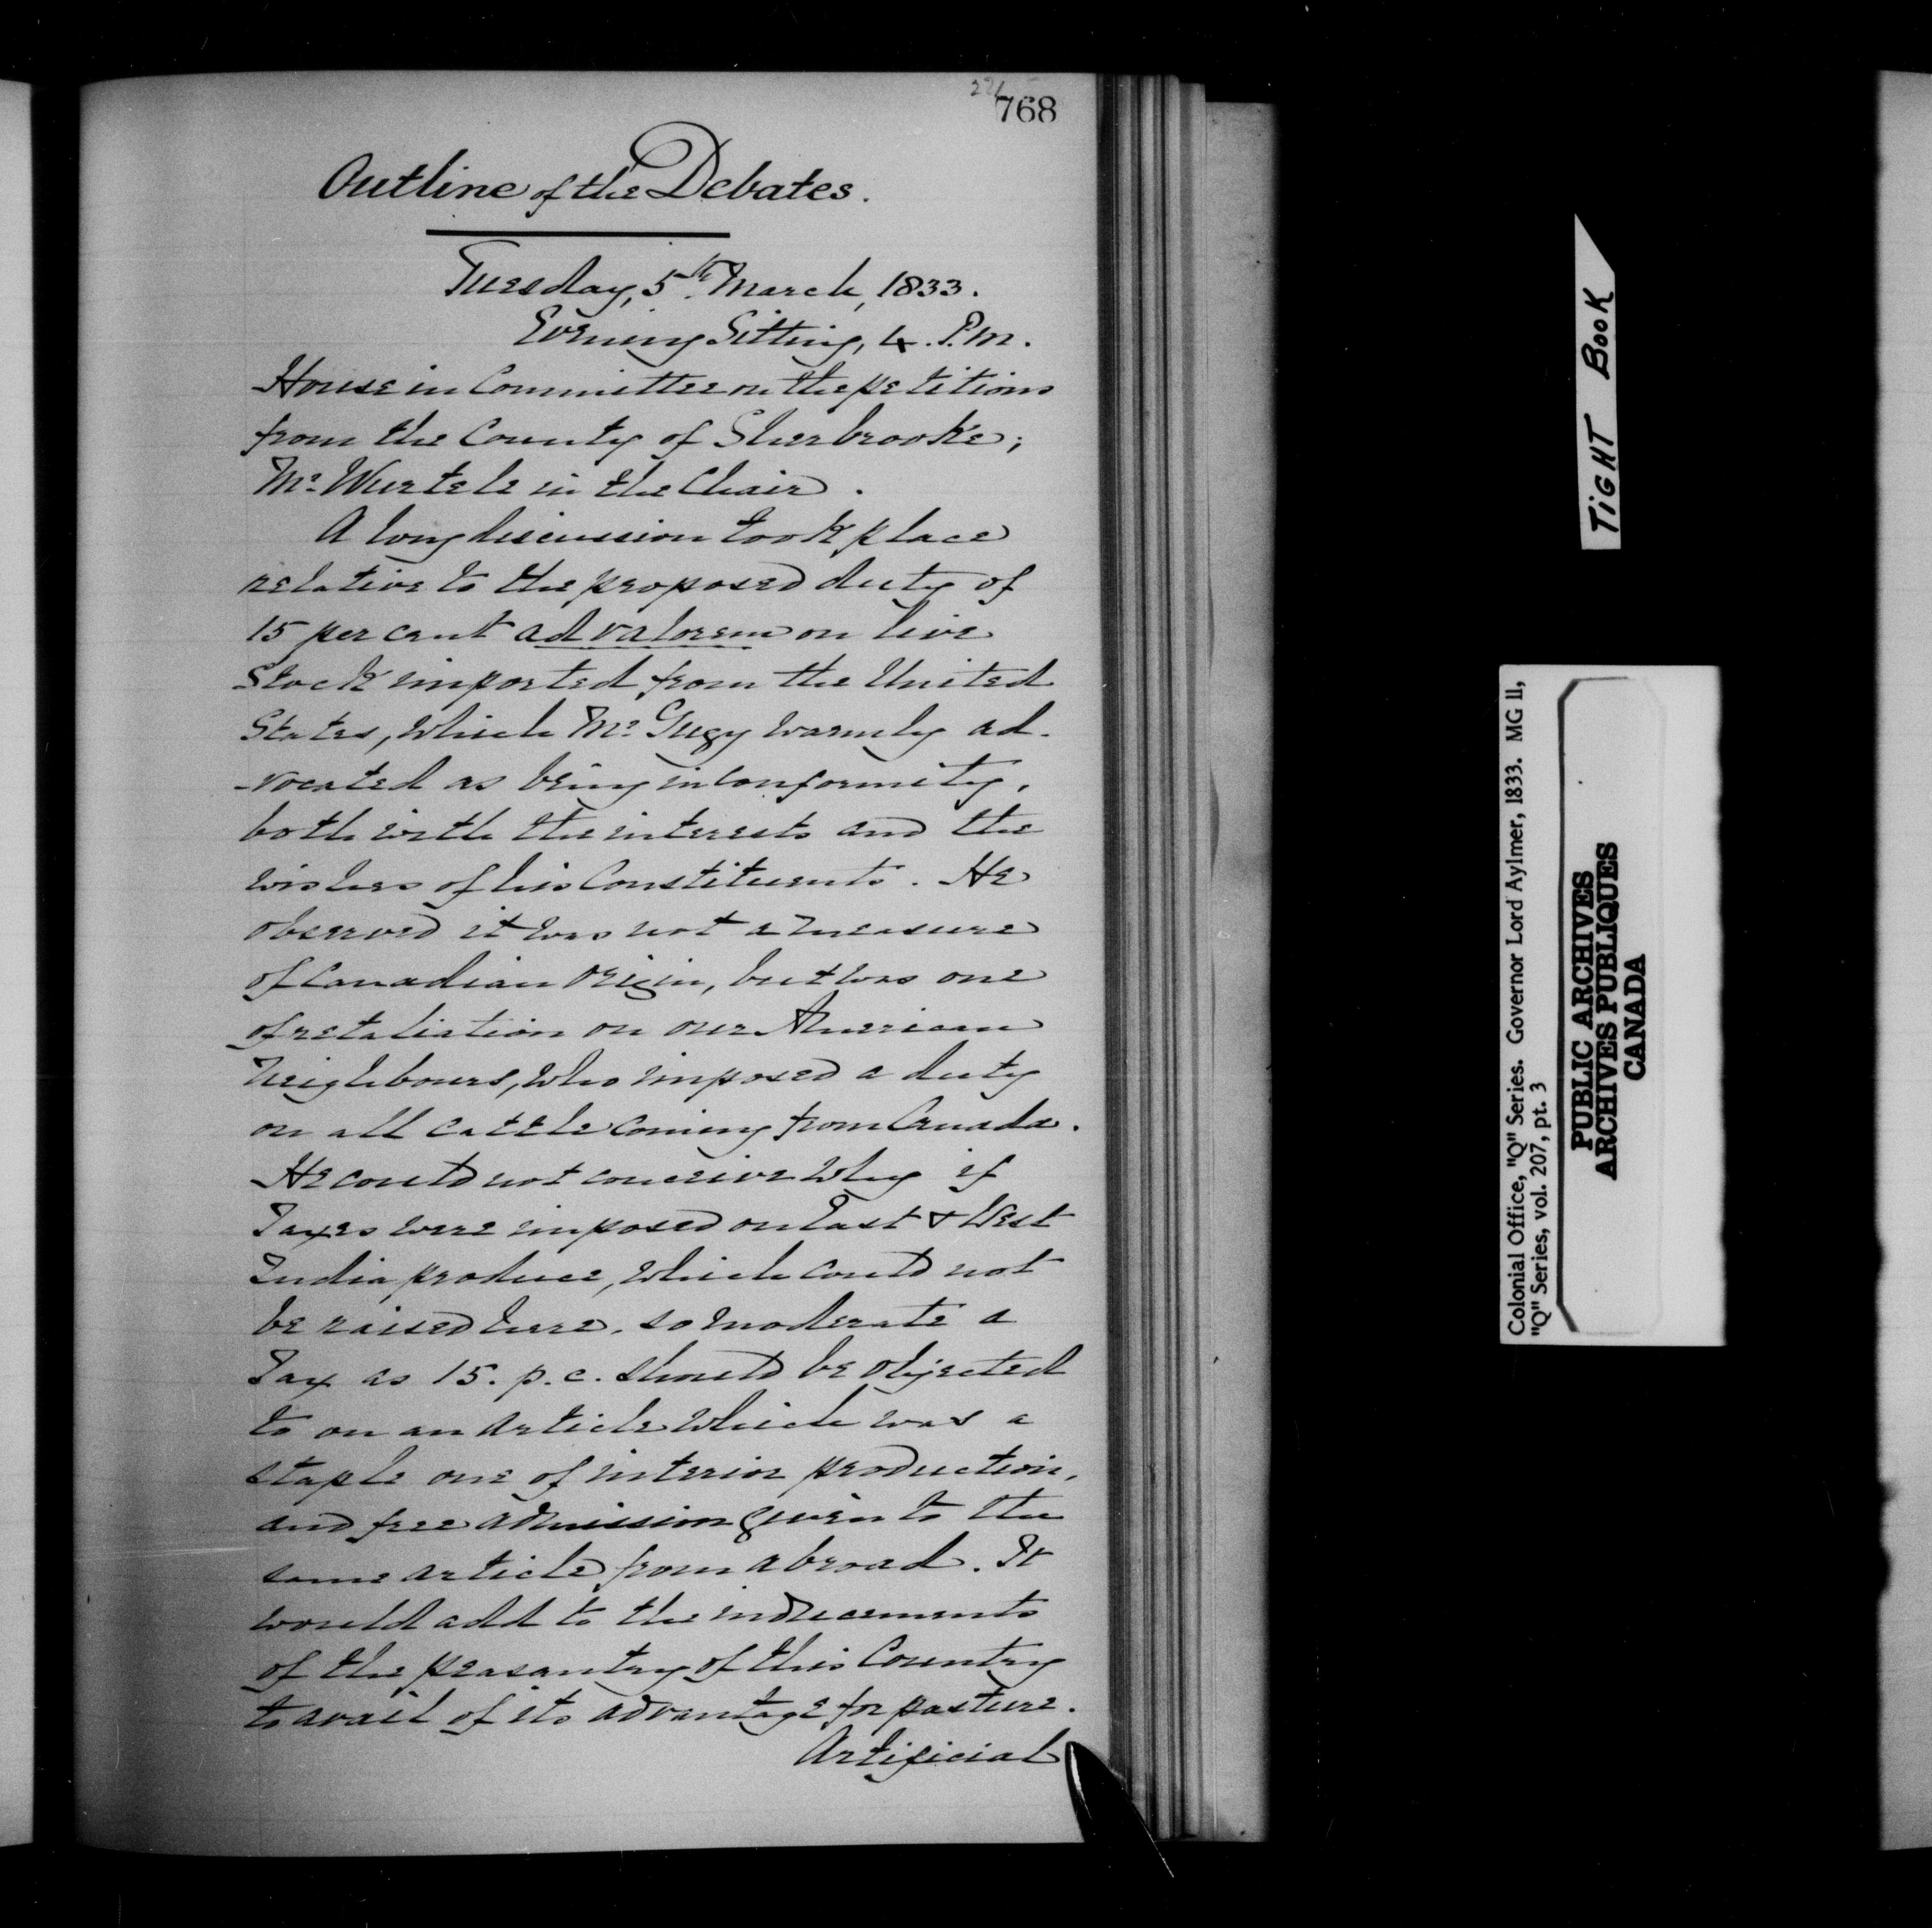 768
Outline of the Debates.
Tuesday, 5th March, 1833.
Evening Sitting, 4. P.M.
House in Committee on the petitions
from the County of Sherbrooke;
Mr. Wurtele in the Chair.
A long discussion took place
relative to the proposed duty of
15 per cent ad valorem on live
Stock imported from the United
States, which Mr. Gugy warmly ad-
-vocated as being in conformity,
both with the interests and the
wishes of his Constituents. He
observed it was not a measure
of Canadian origin, but was one
of retaliation on our American
Neighbours, who imposed a duty
on all cattle coming from Canada.
He could not conceive why if
Taxes were imposed on East & West
India produce, which could not
be raised here, so moderate a
Tax as 15. p.c. should be objected
to on an article which was a
staple one of interior production,
and free admission given to the
same article from abroad. It
would add to the inducements
of the peasantry of this Country
to avail of its advantage for pasture.
Artificial
TIGHT BOOK
Colonial Office, "Q" Series. Governor Lord Aylmer, 1833. MG 11,
"Q" Series, vol. 207, pt. 3
PUBLIC ARCHIVES
ARCHIVES PUBLIQUES
CANADA